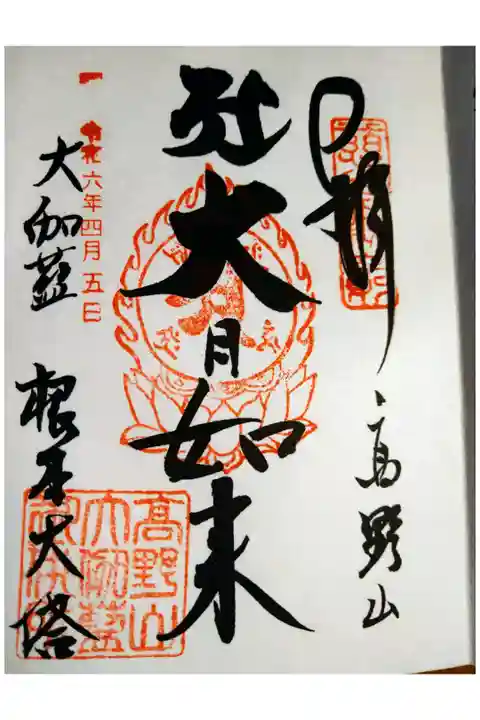 奉拝
高野山
大日如来
令和六年四月五日
大伽藍 根本大塔
高野山
大伽藍